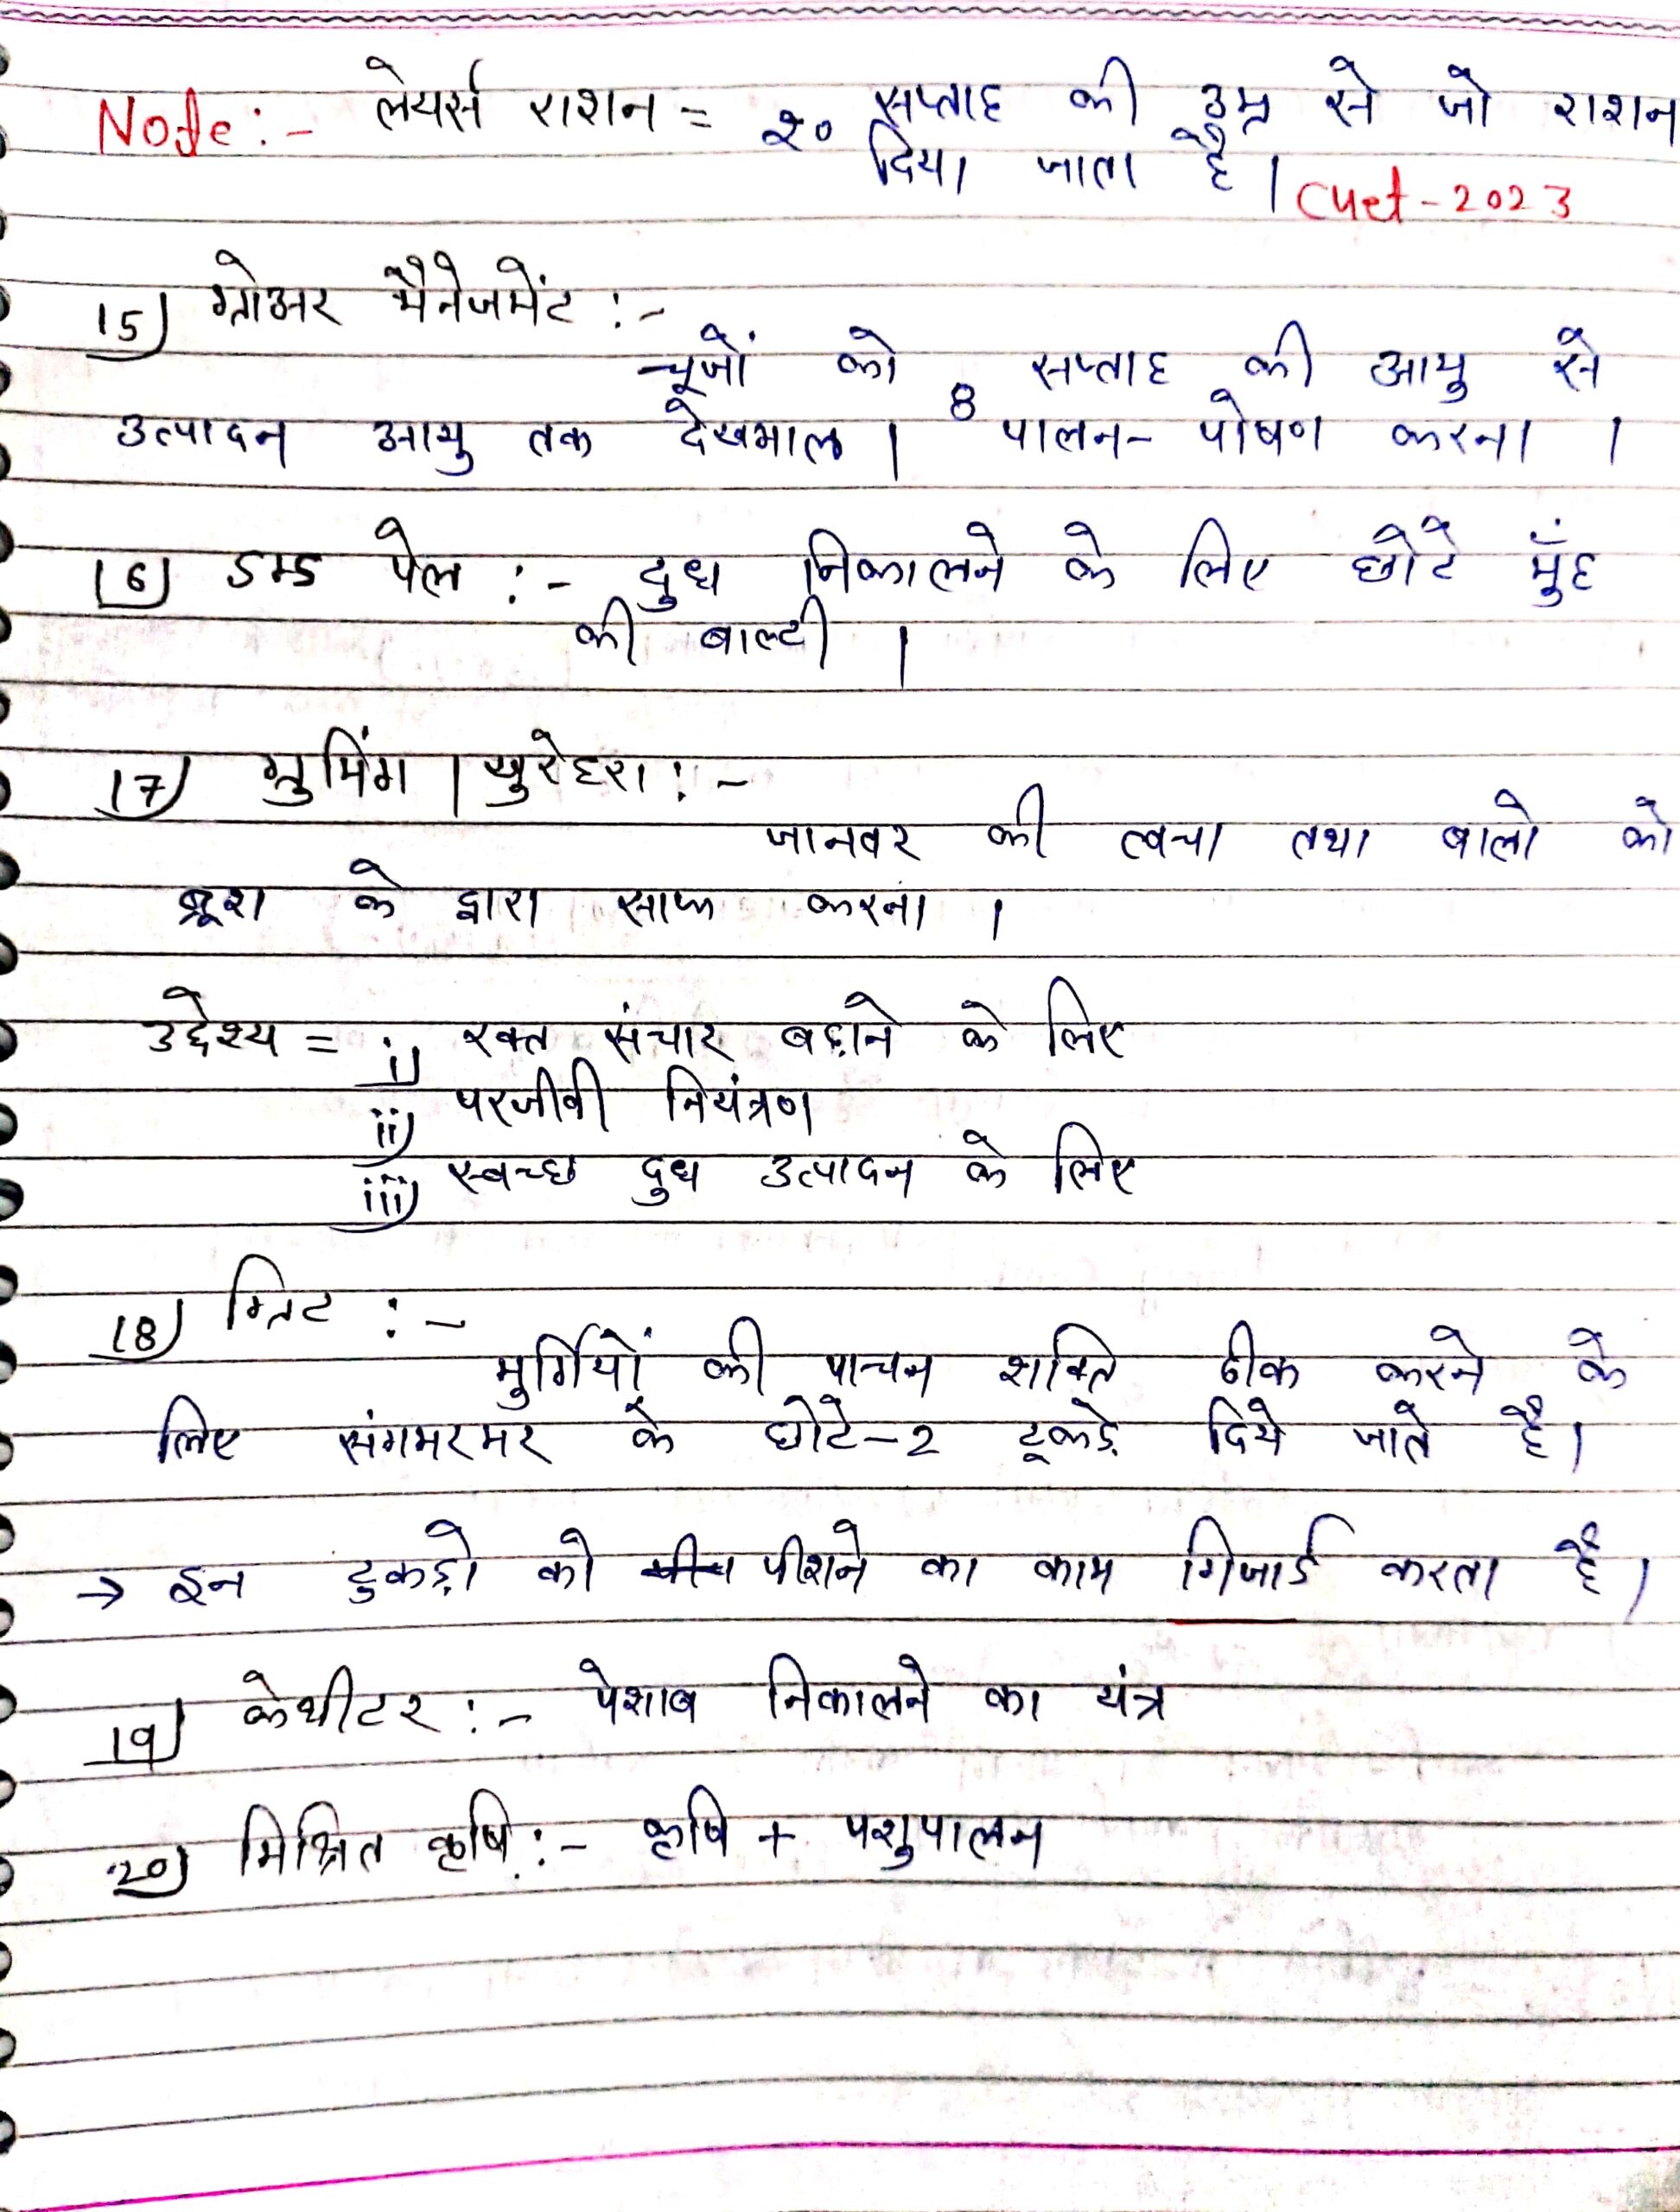 Note:- लेयर्स राशन = 20 सप्ताह की उम्र से जो राशन
दिया जाता है। Cuet-2023
15) ग्रोअर मैनेजमेंट :-
चूजों को 8 सप्ताह की आयु से
उत्पादन आयु तक देखभाल। पालन-पोषण करना।
16) डम्ड पेल :- दुध निकालने के लिए छोटे मुँह
की बाल्टी।
17) ग्रुमिंग | खुरेहरा :-
जानवर की त्वचा तथा बालो को
ब्रूश के द्वारा साफ करना।
उद्देश्य = i) रक्त संचार बढ़ाने के लिए
ii) परजीवी नियंत्रण
iii) स्वच्छ दुध उत्पादन के लिए
18) ग्रिट :-
मुर्गियों की पाचन शक्ति ठीक करने के
लिए संगमरमर के छोटे-2 टूकड़े दिये जाते है।
→ इन टुकड़ो को पीशने का काम गिजार्ड करता है।
19) केथीटर :- पेशाब निकालने का यंत्र
20) मिश्रित कृषि :- कृषि + पशुपालन